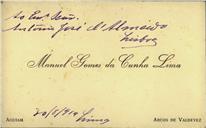 Ao Exmo Snr.
António José d'Almeida
Lisboa
Manuel Gomes da Cunha Lima
AGUIAM
ARCOS DE VALDEVEZ